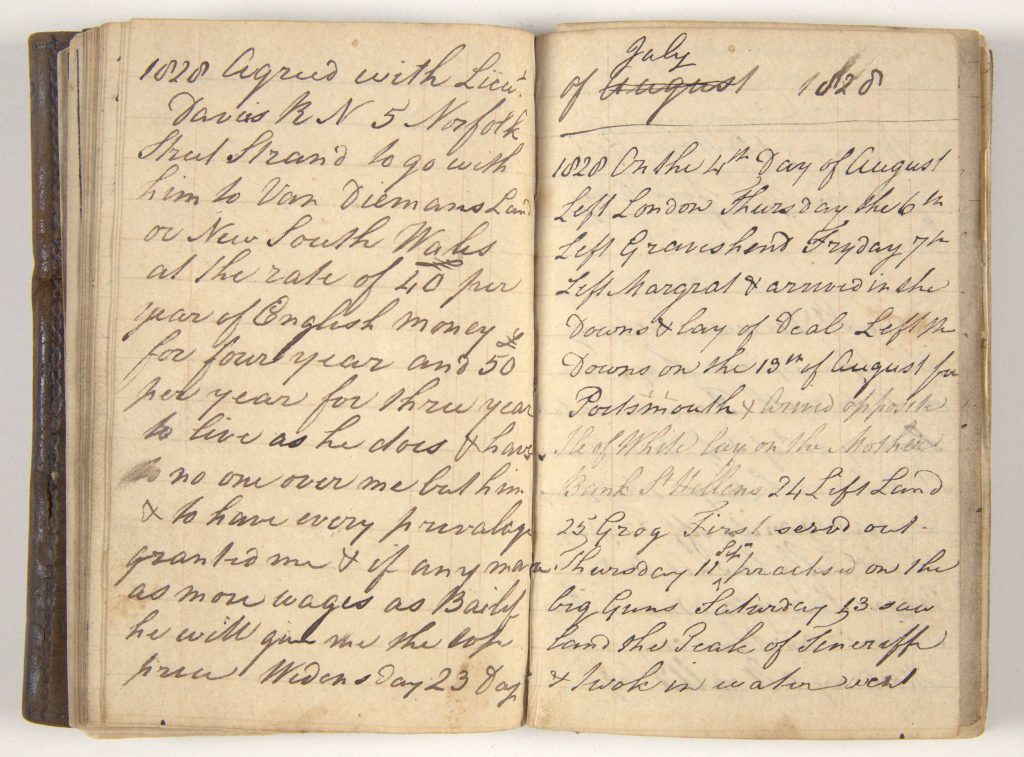 1828 Agreed with Lieut.
Davies R N 5 Norfolk
Street Strand to go with
him to Van Diemans Land
or New South Wales
at the rate of 40 per
year of English money
for four year and 50
per year for three year
to live as he does & have
no one over me but him
& to have every prevalage
granted me & if any man
as more wages as Bailif
he will give me the top
price Wedensday 23 Day
July
of August 1828
1828 On the 4th Day of August
Left London Thursday the 6th
Left Graveshend Fryday 7th
Left Margrat & arrived in the
Downs & lay of Deal Left th
Downs on the 13th of August for
Portsmouth & arived opposite
Ile of White lay on the Mother
Bank St Hellens 24 Left Land
25 Grog First servd out
Sepr
Thursday 11 practised on the
big Guns Saturday 13 saw
land the Peak of Teneriffe
& took in water went